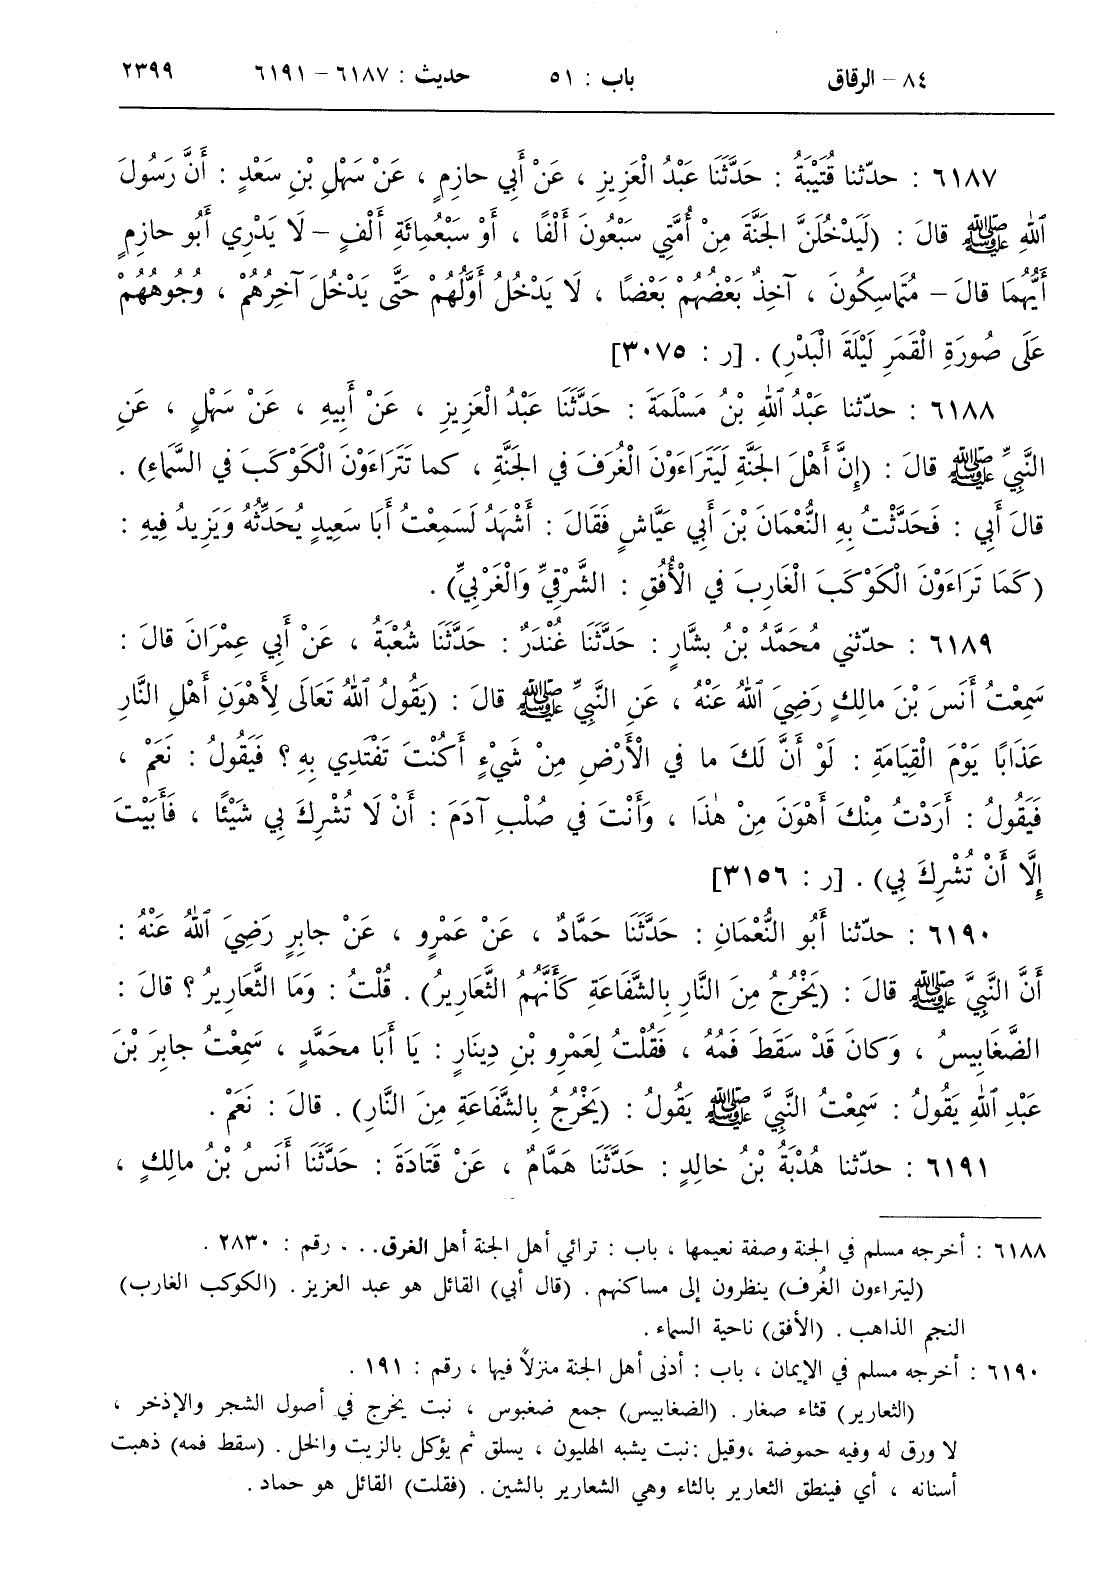 ٨٤ – الرقاق باب : ٥١ حديث : ٦١٨٧ – ٦١٩١ ٢٣٩٩
٦١٨٧ : حدّثنا قُتَيْبَةُ : حَدَّثَنَا عَبْدُ الْعَزِيزِ ، عَنْ أَبِي حازِمٍ ، عَنْ سَهْلِ بْنِ سَعْدٍ : أَنَّ رَسُولَ
ٱللهِ ﷺ قالَ : (لَيَدْخُلَنَّ الجَنَّةَ مِنْ أُمَّتِي سَبْعُونَ أَلْفًا ، أَوْ سَبْعُمِائَةِ أَلْفٍ – لَا يَدْرِي أَبُو حازِمٍ
أَيُّهُمَا قالَ – مُتَمَاسِكُونَ ، آخِذٌ بَعْضُهُمْ بَعْضًا ، لَا يَدْخُلُ أَوَّلُهُمْ حَتَّى يَدْخُلَ آخِرُهُمْ ، وُجُوهُهُمْ
عَلَى صُورَةِ الْقَمَرِ لَيْلَةَ الْبَدْرِ) . [ر : ٣٠٧٥]
٦١٨٨ : حدّثنا عَبْدُ ٱللهِ بْنُ مَسْلَمَةَ : حَدَّثَنَا عَبْدُ الْعَزِيزِ ، عَنْ أَبِيهِ ، عَنْ سَهْلٍ ، عَنِ
النَّبِيِّ ﷺ قالَ : (إِنَّ أَهْلَ الجَنَّةِ لَيَتَرَاءَوْنَ الْغُرَفَ في الجَنَّةِ ، كما تَتَرَاءَوْنَ الْكَوْكَبَ في السَّمَاءِ) .
قالَ أَبِي : فَحَدَّثْتُ بِهِ النُّعْمَانَ بْنَ أَبِي عَيَّاشٍ فَقَالَ : أَشْهَدُ لَسَمِعْتُ أَبَا سَعِيدٍ يُحَدِّثُهُ وَيَزِيدُ فِيهِ :
(كَمَا تَرَاءَوْنَ الْكَوْكَبَ الْغَارِبَ في الْأُفُقِ : الشَّرْقِيِّ وَالْغَرْبِيِّ) .
٦١٨٩ : حدّثني مُحَمَّدُ بْنُ بشَّارٍ : حَدَّثَنَا غُنْدَرٌ : حَدَّثَنَا شُعْبَةُ ، عَنْ أَبِي عِمْرَانَ قالَ :
سَمِعْتُ أَنَسَ بْنَ مالِكٍ رَضِيَ ٱللهُ عَنْهُ ، عَنِ النَّبِيِّ ﷺ قالَ : (يَقُولُ ٱللهُ تَعَالَى لِأَهْوَنِ أَهْلِ النَّارِ
عَذَابًا يَوْمَ الْقِيَامَةِ : لَوْ أَنَّ لَكَ ما في الْأَرْضِ مِنْ شَيْءٍ أَكُنْتَ تَفْتَدِي بِهِ ؟ فَيَقُولُ : نَعَمْ ،
فَيَقُولُ : أَرَدْتُ مِنْكَ أَهْوَنَ مِنْ هٰذَا ، وَأَنْتَ في صُلْبِ آدَمَ : أَنْ لَا تُشْرِكَ بِي شَيْئًا ، فَأَبَيْتَ
إِلَّا أَنْ تُشْرِكَ بِي) . [ر : ٣١٥٦]
٦١٩٠ : حدّثنا أَبُو النُّعْمَانِ : حَدَّثَنَا حَمَّادٌ ، عَنْ عَمْرٍو ، عَنْ جابِرٍ رَضِيَ ٱللهُ عَنْهُ :
أَنَّ النَّبِيَّ ﷺ قالَ : (يَخْرُجُ مِنَ النَّارِ بِالشَّفَاعَةِ كَأَنَّهُمُ الثَّعَارِيرُ) . قُلْتُ : وَمَا الثَّعَارِيرُ ؟ قالَ :
الضَّغَابِيسُ ، وَكانَ قَدْ سَقَطَ فَمُهُ ، فَقُلْتُ لِعَمْرِو بْنِ دِينَارٍ : يَا أَبَا محَمَّدٍ ، سَمِعْتُ جابِرَ بْنَ
عَبْدِ ٱللهِ يَقُولُ : سَمِعْتُ النَّبِيَّ ﷺ يَقُولُ : (يَخْرُجُ بِالشَّفَاعَةِ مِنَ النَّارِ) . قالَ : نَعَمْ .
٦١٩١ : حدّثنا هُدْبَةُ بْنُ خالِدٍ : حَدَّثَنَا هَمَّامٌ ، عَنْ قَتَادَةَ : حَدَّثَنَا أَنَسُ بْنُ مالِكٍ ،
٦١٨٨ : أخرجه مسلم في الجنة وصفة نعيمها ، باب : ترائي أهل الجنة أهل الغرق . . . رقم : ٢٨٣٠ .
(ليتراءون الغُرف) ينظرون إلى مساكنهم . (قال أبي) القائل هو عبد العزيز . (الكوكب الغارب)
النجم الذاهب . (الأفق) ناحية السماء .
٦١٩٠ : أخرجه مسلم في الإيمان ، باب : أدنى أهل الجنة منزلاً فيها ، رقم : ١٩١ .
(الثعارير) قثاء صغار . (الضغابيس) جمع ضغبوس ، نبت يخرج في أصول الشجر والإذخر ،
لا ورق له وفيه حموضة ،وقيل :نبت يشبه الهليون ، يسلق ثم يؤكل بالزيت والخل . (سقط فمه) ذهبت
أسنانه ، أي فينطق الثعارير بالثاء وهي الشعارير بالشين . (فقلت) القائل هو حماد .